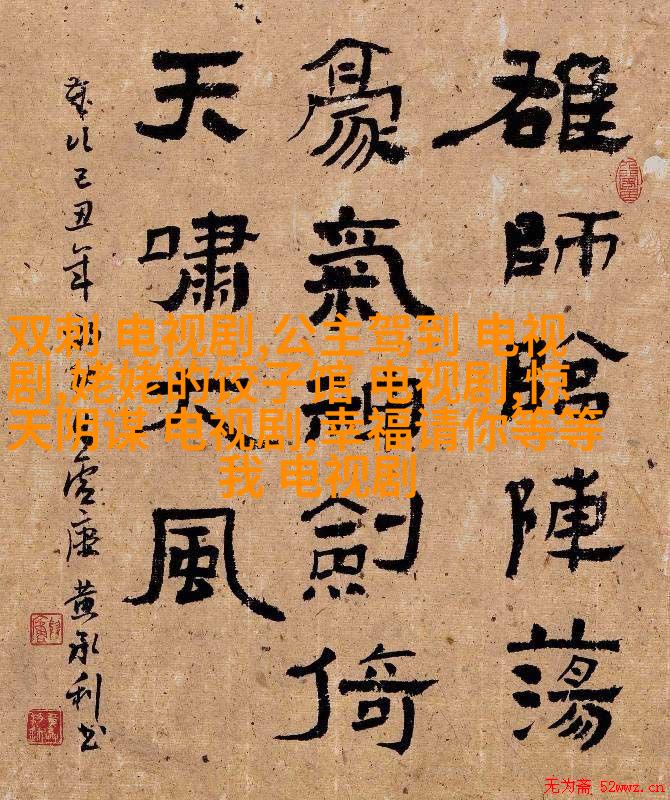 雄師臨陣蕩
豪氣劍倚
天嘯大風
歲次己丑年
黄承利书
双刺 电视剧,公主驾到 电视
剧,姥姥的饺子馆 电视剧,惊
天阴谋 电视剧,幸福请你等等
我 电视剧
无为斋 52wwz.cn